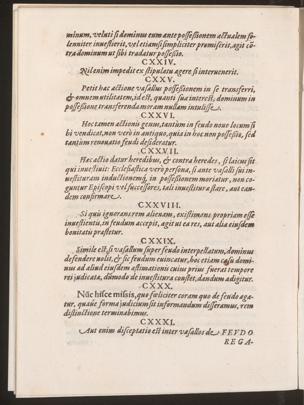 minum, veluti si dominus eum ante possessionem actualem so-
lenniter investierit, vel etiamsi simpliciter promiserit, agit cō-
tra dominum ut sibi tradatur possessio.
CXXIV.
Nil enim impedit ex stipulatu agere si intervenerit.
CXXV.
Petit hac actione vasallus possessionem in se transferri,
& omnem utilitatem, id est, quanti sua interest, dominum in
possessione transferenda moram nullam intulisse.
CXXVI.
Hoc tamen actionis genus, tantùm in feudo novo locum si
bi vendicat, non verò in antiquo, quia in hoc non possessio, sed
tantùm renovatio feudi desideratur.
CXXVII.
Hac actio datur heredibus, & contra heredes, si laicus sit
qui investivit: Ecclesiastica verò persona, si ante vasalli sui in-
vestituram inductionemq́; in possessionem moriatur, non co-
guntur Episcopi vel successores, tali investitura stare, aut ean-
dem confirmare.
CXXVIII.
Si quis ignorans rem alienam, existimans propriam esse
investientis, in feudum accepit, agit ut ea res, aut alia eiusdem
bonitatis præstetur.
CXXIX.
Simile est, si vasallum super feudo interpellatum, dominus
defendere nolit, & sic feudum euincatur, hoc etiam casu domi-
nus ad aliud eiusdem æstimationis cuius prius fuerat tempore
rei judicatæ, dūmodo de investitura constet, dandum adigitur.
CXXX.
Nūc hisce missis, quo fœliciter coram quo de feudo aga-
tur, quæue forma judicium sit informandum disseramus, rem
distinctione terminabimus.
CXXXI.
Aut enim disceptatio est inter vasallos de FEUDO
REGA-